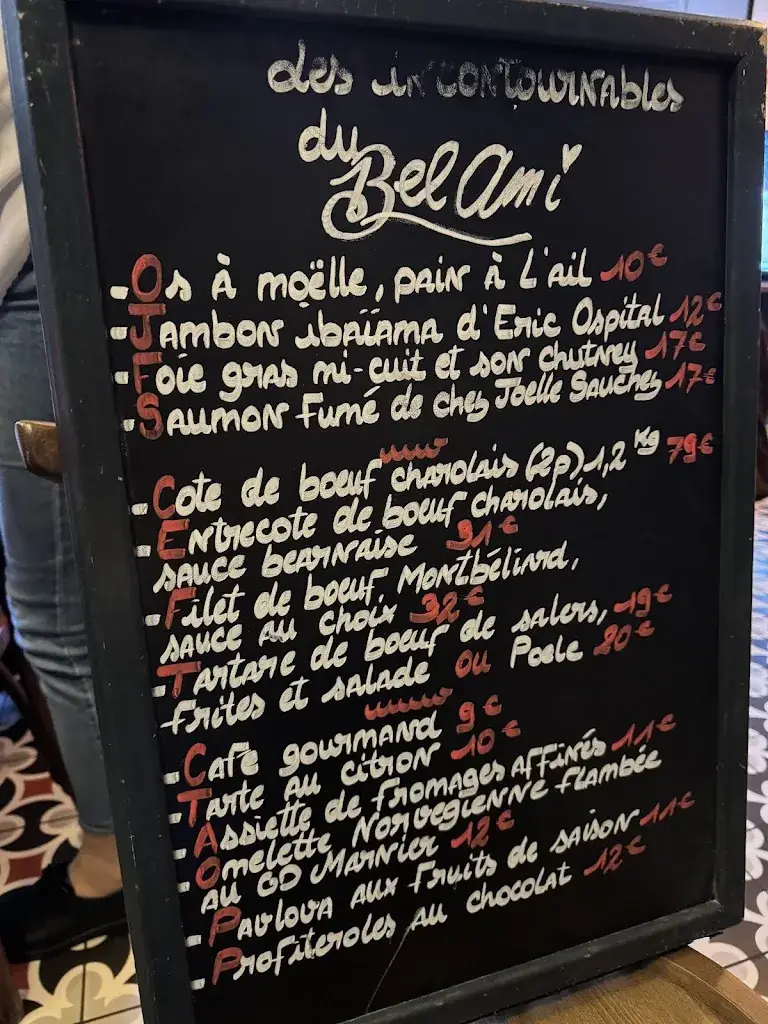 des incontournables
du
Bel Ami
- Os à moëlle, pain à l'ail 10€
- Jambon ibaïama d'Eric Ospital 12€
- Foie gras mi-cuit et son chutney 17€
- Saumon fumé de chez Joelle Sauches 17€
- Cote de boeuf charolais (2p) 1,2 Kg 79€
- Entrecote de boeuf charolais,
sauce bearnaise 31€
- Filet de boeuf Montbéliard,
sauce au choix 32€
- Tartare de boeuf de salers, 19€
frites et salade ou Poele 20€
- Café gourmand 9€
- Tarte au citron 10€
- Assiette de fromages affinés 11€
- Omelette Norvegienne flambée
au GD Marnier 12€
- Pavlova aux fruits de saison 11€
- Profiteroles au chocolat 12€